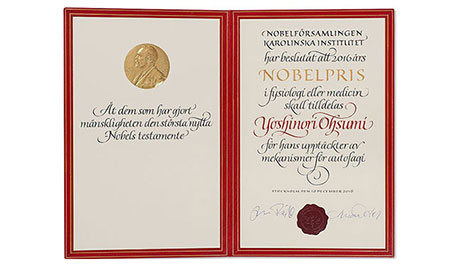 Åt dem som har gjort
mänskligheten den största nytta
Nobels testamente
NOBELFÖRSAMLINGEN
KAROLINSKA INSTITUTET
har beslutat att 2016 års
NOBELPRIS
i fysiologi eller medicin
skall tilldelas
Yoshinori Ohsumi
för hans upptäckter av
mekanismer för autofagi
STOCKHOLM DEN 10 DECEMBER 2016